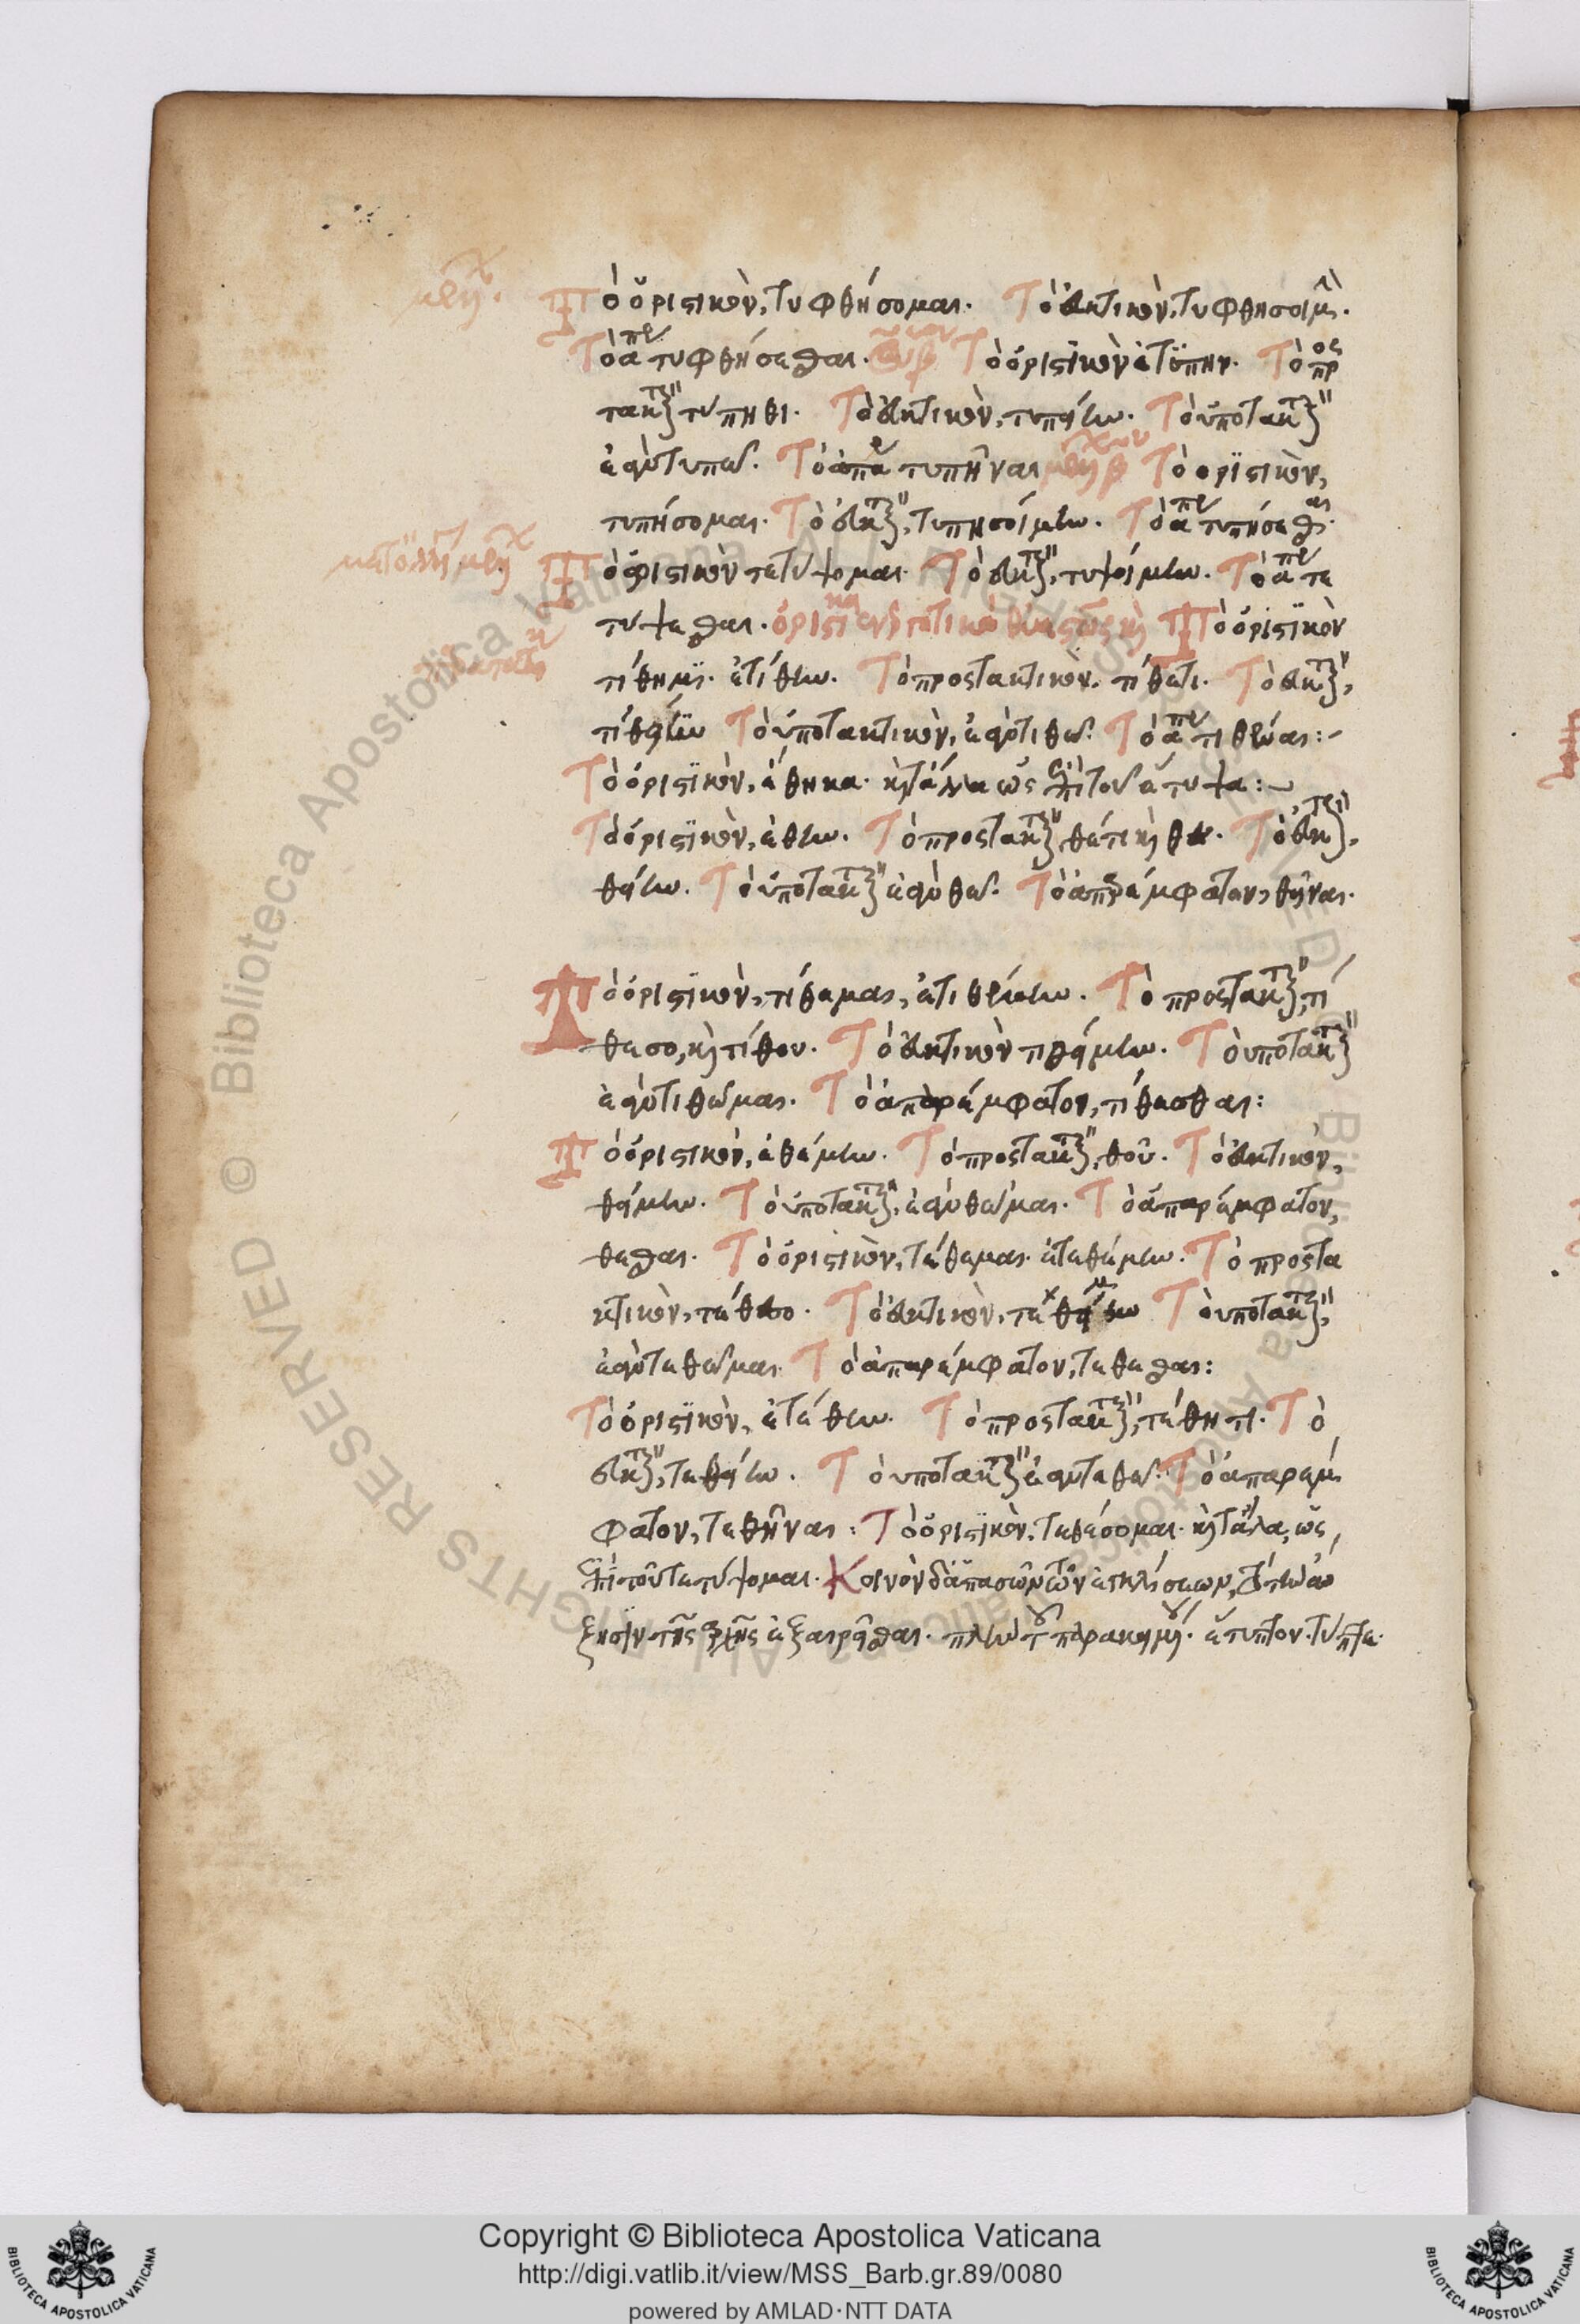 Τὸ ὁριστικὸν, τυφθήσομαι. Τὸ εὐκτικὸν, τυφθησοίμην.
Τὸ ἀπαρ τυφθήσεσθαι. Τὸ ὁριστικὸν ἐτύπην. Τὸ προς
τακτικ τύπηθι. Τὸ εὐκτικὸν, τυπείην. Τὸ ὑποτακτικ
ἐὰν τυπῶ. Τὸ ἀπαρ τυπῆναι Τὸ ὁριστικὸν,
τυπήσομαι. Τὸ εὐκτικ, τυπησοίμην. Τὸ ἀπαρ τυπήσεσθαι.
Τὸ ὁριστικὸν τετύψομαι. Τὸ εὐκτικ, τυψοίμην. Τὸ ἀπαρ τε
τύψεσθαι. Τὸ ὁριστικὸν
τίθημι. ἐτίθην. Τὸ προστακτικὸν. τίθετι. Τὸ εὐκτικ,
τιθείην Τὸ ὑποτακτικὸν, ἐὰν τιθῶ. Τὸ ἀπαρ τιθέναι:
Τὸ ὁριστικὸν, ἔθηκα. καὶ τἄλλα ὡς ἐπὶ τοῦ ἔτυψα:
Τὸ ὁριστικὸν, ἔθην. Τὸ προστακτικ, θέτι καὶ θὲς. Τὸ εὐκτικ,
θείην. Τὸ ὑποτακτικ ἐὰν θῶ. Τὸ ἀπαρέμφατον, θεῖναι.
Τὸ ὁριστικὸν, τίθεμαι, ἐτιθέμην. Τὸ προστακτικ, τί
θεσο, καὶ τίθου. Τὸ εὐκτικὸν τιθείμην. Τὸ ὑποτακτικ
ἐὰν τιθῶμαι. Τὸ ἀπαρέμφατον, τίθεσθαι:
Τὸ ὁριστικὸν, ἐθέμην. Τὸ προστακτικ, θοῦ. Τὸ εὐκτικὸν,
θείμην. Τὸ ὑποτακτικ, ἐὰν θῶμαι. Τὸ ἀπαρέμφατον,
θέσθαι. Τὸ ὁριστικὸν, τέθεμαι. ἐτεθέμην. Τὸ προστα
κτικὸν, τέθεσο. Τὸ εὐκτικὸν, τεθείμην Τὸ ὑποτακτικ,
ἐὰν τεθῶμαι. Τὸ ἀπαρέμφατον, τεθέσθαι:
Τὸ ὁριστικὸν, ἐτέθην. Τὸ προστακτικ, τέθητι. Τὸ
εὐκτικ, τεθείην. Τὸ ὑποτακτικ ἐὰν τεθῶ. Τὸ ἀπαρέμ
φατον, τεθῆναι: Τὸ ὁριστικὸν, τεθήσομαι. καὶ τἄλλα, ὡς
ἐπὶ τοῦ τετύψομαι. Κοινὸν δὲ πασῶν τῶν ἐγκλίσεων, τὸ τὴν αὔ
ξησιν τῆς ἀρχῆς ἐξαιρεῖσθαι. πλὴν τοῦ παρακειμένου. ἔτυπτον. τύπτε.
Copyright © Biblioteca Apostolica Vaticana
http://digi.vatlib.it/view/MSS_Barb.gr.89/0080
powered by AMLAD·NTT DATA